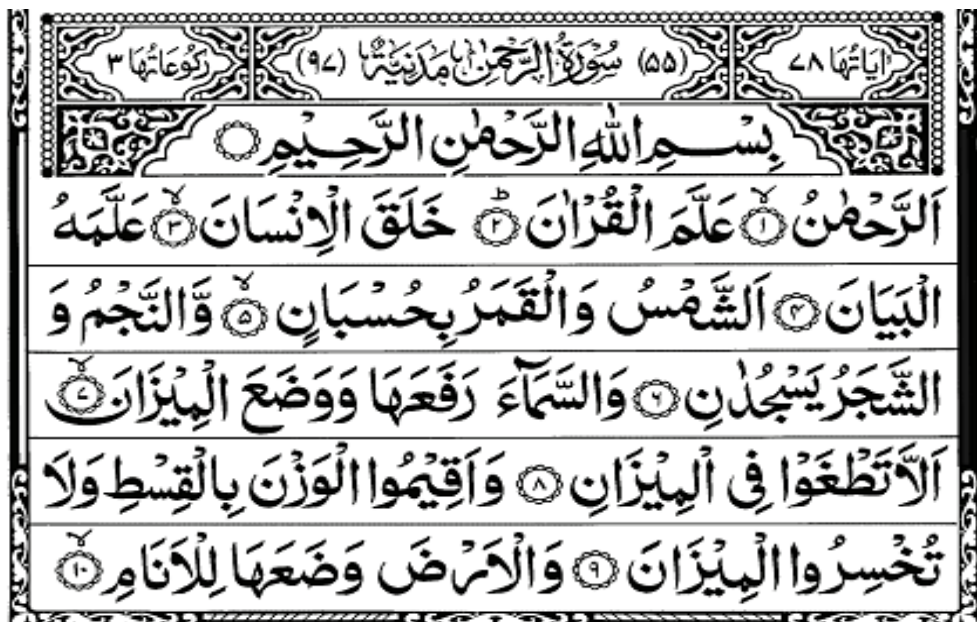 اٰيَاتُهَا ٧٨ (٥٥) سُوْرَةُ الرَّحْمٰنِ مَدَنِيَّةٌ (٩٧) رُكُوْعَاتُهَا ٣
بِسْمِ اللّٰهِ الرَّحْمٰنِ الرَّحِيْمِ ○
اَلرَّحْمٰنُ ۙ﴿١﴾ عَلَّمَ الْقُرْاٰنَ ؕ﴿٢﴾ خَلَقَ الْاِنْسَانَ ۙ﴿٣﴾ عَلَّمَهُ
الْبَيَانَ ﴿٤﴾ اَلشَّمْسُ وَالْقَمَرُ بِحُسْبَانٍ ۙ﴿٥﴾ وَّالنَّجْمُ وَ
الشَّجَرُ يَسْجُدٰنِ ﴿٦﴾ وَالسَّمَآءَ رَفَعَهَا وَوَضَعَ الْمِيْزَانَ ۙ﴿٧﴾
اَلَّا تَطْغَوْا فِى الْمِيْزَانِ ﴿٨﴾ وَاَقِيْمُوا الْوَزْنَ بِالْقِسْطِ وَلَا
تُخْسِرُوا الْمِيْزَانَ ﴿٩﴾ وَالْاَرْضَ وَضَعَهَا لِلْاَنَامِ ۙ﴿١٠﴾